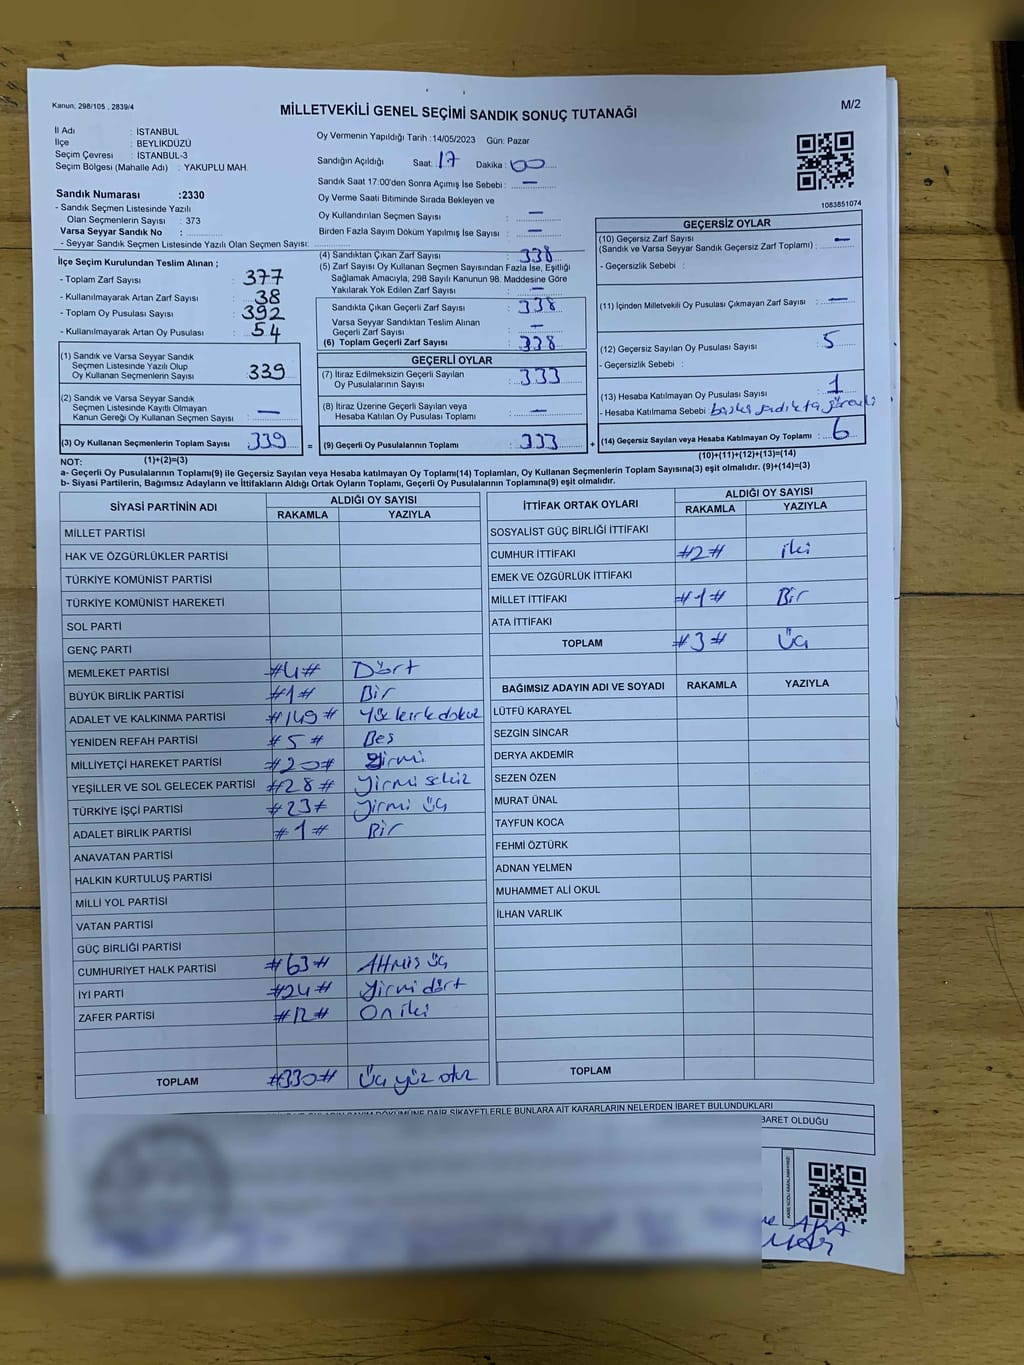 Kanun; 298/105 , 2839/4
MİLLETVEKİLİ GENEL SEÇİMİ SANDIK SONUÇ TUTANAĞI
M/2
İl Adı : İSTANBUL
İlçe : BEYLİKDÜZÜ
Seçim Çevresi : İSTANBUL-3
Seçim Bölgesi (Mahalle Adı) : YAKUPLU MAH.
Oy Vermenin Yapıldığı Tarih :14/05/2023 Gün: Pazar
Sandığın Açıldığı Saat: 17 Dakika: 00
Sandık Saat 17:00'den Sonra Açımış İse Sebebi : —
Oy Verme Saati Bitiminde Sırada Bekleyen ve
Oy Kullandırılan Seçmen Sayısı : —
Birden Fazla Sayım Döküm Yapılmış İse Sayısı : —
1083851074
Sandık Numarası :2330
- Sandık Seçmen Listesinde Yazılı
Olan Seçmenlerin Sayısı : 373
Varsa Seyyar Sandık No :
- Seyyar Sandık Seçmen Listesinde Yazılı Olan Seçmen Sayısı:
İlçe Seçim Kurulundan Teslim Alınan ;
- Toplam Zarf Sayısı : 377
- Kullanılmayarak Artan Zarf Sayısı : 38
- Toplam Oy Pusulası Sayısı : 392
- Kullanılmayarak Artan Oy Pusulası : 54
(1) Sandık ve Varsa Seyyar Sandık
Seçmen Listesinde Yazılı Olup
Oy Kullanan Seçmenlerin Sayısı : 339
(2) Sandık ve Varsa Seyyar Sandık
Seçmen Listesinde Kayıtlı Olmayan
Kanun Gereği Oy Kullanan Seçmen Sayısı : —
(3) Oy Kullanan Seçmenlerin Toplam Sayısı : 339 =
(1)+(2)=(3)
(4) Sandıktan Çıkan Zarf Sayısı : 338
(5) Zarf Sayısı Oy Kullanan Seçmen Sayısından Fazla İse, Eşitliği
Sağlamak Amacıyla, 298 Sayılı Kanunun 98. Maddesine Göre
Yakılarak Yok Edilen Zarf Sayısı : —
Sandıkta Çıkan Geçerli Zarf Sayısı : 338
Varsa Seyyar Sandıktan Teslim Alınan
Geçerli Zarf Sayısı : —
(6) Toplam Geçerli Zarf Sayısı : 338
GEÇERLİ OYLAR
(7) İtiraz Edilmeksizin Geçerli Sayılan
Oy Pusulalarının Sayısı : 333
(8) İtiraz Üzerine Geçerli Sayılan veya
Hesaba Katılan Oy Pusulası Toplamı : —
(9) Geçerli Oy Pusulalarının Toplamı : 333 +
GEÇERSİZ OYLAR
(10) Geçersiz Zarf Sayısı
(Sandık ve Varsa Seyyar Sandık Geçersiz Zarf Toplamı) : —
- Geçersizlik Sebebi :
(11) İçinden Milletvekili Oy Pusulası Çıkmayan Zarf Sayısı : —
(12) Geçersiz Sayılan Oy Pusulası Sayısı : 5
- Geçersizlik Sebebi :
(13) Hesaba Katılmayan Oy Pusulası Sayısı : 1
- Hesaba Katılmama Sebebi : başka sandıkta görevli
(14) Geçersiz Sayılan veya Hesaba Katılmayan Oy Toplamı : 6
(10)+(11)+(12)+(13)=(14)
NOT:
a- Geçerli Oy Pusulalarının Toplamı(9) ile Geçersiz Sayılan veya Hesaba katılmayan Oy Toplamı(14) Toplamları, Oy Kullanan Seçmenlerin Toplam Sayısına(3) eşit olmalıdır. (9)+(14)=(3)
b- Siyasi Partilerin, Bağımsız Adayların ve İttifakların Aldığı Ortak Oyların Toplamı, Geçerli Oy Pusulalarının Toplamına(9) eşit olmalıdır.
SİYASİ PARTİNİN ADI ALDIĞI OY SAYISI
RAKAMLA YAZIYLA
MİLLET PARTİSİ
HAK VE ÖZGÜRLÜKLER PARTİSİ
TÜRKİYE KOMÜNİST PARTİSİ
TÜRKİYE KOMÜNİST HAREKETİ
SOL PARTİ
GENÇ PARTİ
MEMLEKET PARTİSİ #4# Dört
BÜYÜK BİRLİK PARTİSİ #1# Bir
ADALET VE KALKINMA PARTİSİ #149# Yüz kırk dokuz
YENİDEN REFAH PARTİSİ #5# Beş
MİLLİYETÇİ HAREKET PARTİSİ #20# Yirmi
YEŞİLLER VE SOL GELECEK PARTİSİ #28# Yirmi sekiz
TÜRKİYE İŞÇİ PARTİSİ #23# Yirmi üç
ADALET BİRLİK PARTİSİ #1# Bir
ANAVATAN PARTİSİ
HALKIN KURTULUŞ PARTİSİ
MİLLİ YOL PARTİSİ
VATAN PARTİSİ
GÜÇ BİRLİĞİ PARTİSİ
CUMHURİYET HALK PARTİSİ #63# Altmış üç
İYİ PARTİ #24# Yirmi dört
ZAFER PARTİSİ #12# On iki
TOPLAM #330# Üç yüz otuz
İTTİFAK ORTAK OYLARI ALDIĞI OY SAYISI
RAKAMLA YAZIYLA
SOSYALİST GÜÇ BİRLİĞİ İTTİFAKI
CUMHUR İTTİFAKI #2# iki
EMEK VE ÖZGÜRLÜK İTTİFAKI
MİLLET İTTİFAKI #1# Bir
ATA İTTİFAKI
TOPLAM #3# Üç
BAĞIMSIZ ADAYIN ADI VE SOYADI RAKAMLA YAZIYLA
LÜTFÜ KARAYEL
SEZGİN SİNCAR
DERYA AKDEMİR
SEZEN ÖZEN
MURAT ÜNAL
TAYFUN KOCA
FEHMİ ÖZTÜRK
ADNAN YELMEN
MUHAMMET ALİ OKUL
İLHAN VARLIK
TOPLAM
DÖKÜMÜNE DAİR ŞİKAYETLERLE BUNLARA AİT KARARLARIN NELERDEN İBARET BULUNDUKLARI
İBARET OLDUĞU